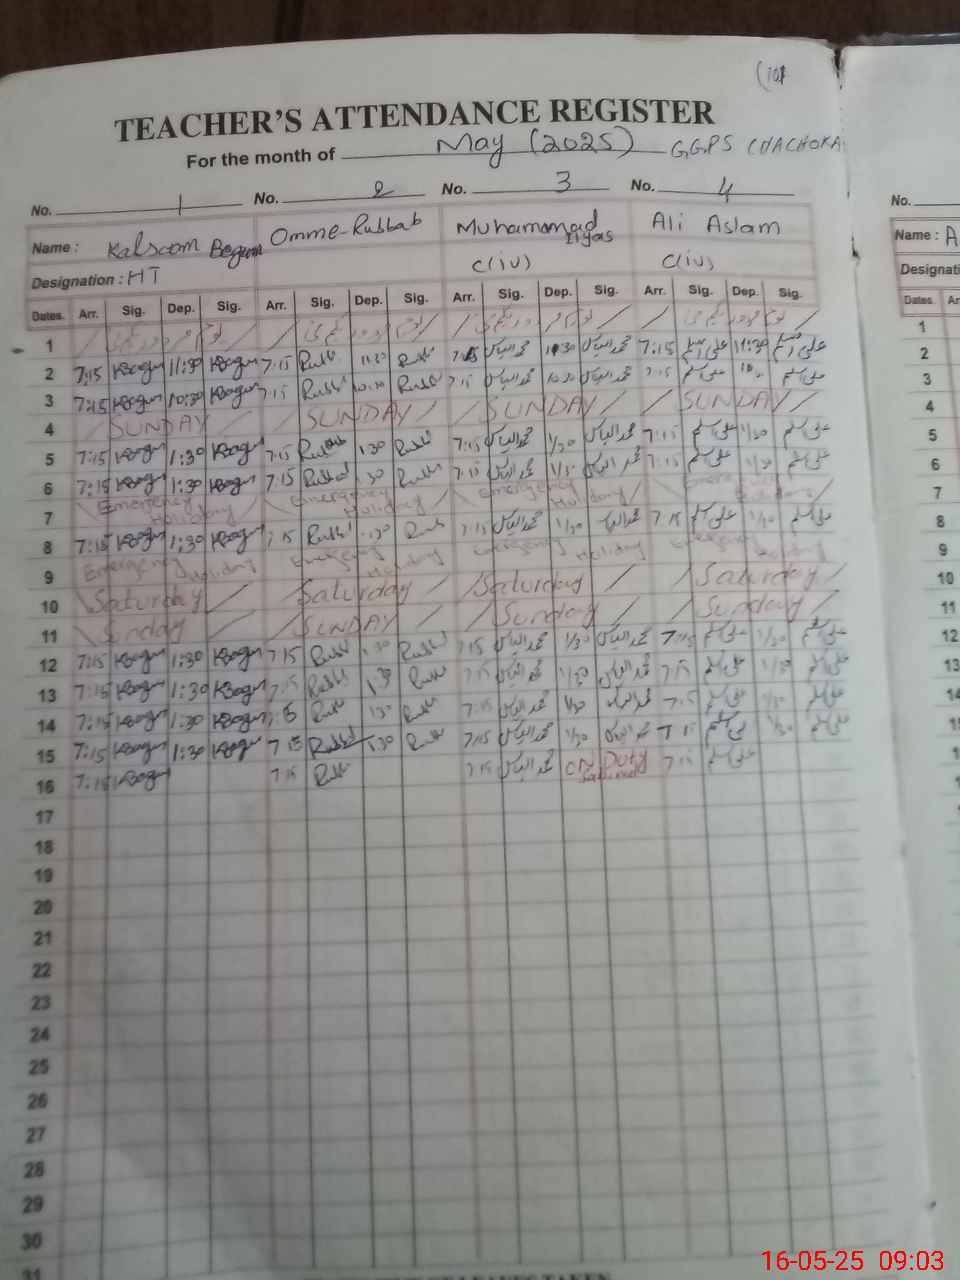 (101
TEACHER'S ATTENDANCE REGISTER
For the month of May (2025) GGPS CHACHOKA
No. 1 No. 2 No. 3 No. 4 No.
Name : Kalsoom Begum Omme-Rubbab Muhammad Ilyas Ali Aslam Name : A
Designation : HT C(iv) C(iv) Designati
Dates. Arr. Sig. Dep. Sig. Arr. Sig. Dep. Sig. Arr. Sig. Dep. Sig. Arr. Sig. Dep. Sig. Dates. Ar
1 1
2 7:15 KBegum 11:30 KBegum 7:15 Rubb 11:30 Rubb 7:15 محمد الیاس 11:30 محمد الیاس 7:15 علی اسلم 11:30 علی اسلم 2
3 7:15 KBegum 10:30 KBegum 7:15 Rubb 10:30 Rubb 7:15 محمد الیاس 10:30 محمد الیاس 7:15 علی اسلم علی اسلم 3
4 SUNDAY SUNDAY SUNDAY SUNDAY 4
5 7:15 KBegum 1:30 KBegum 7:15 Rubb 1:30 Rubb 7:15 محمد الیاس 1/30 محمد الیاس 7:15 علی اسلم 1/30 علی اسلم 5
6 7:15 KBegum 1:30 KBegum 7:15 Rubb 1:30 Rubb 7:15 محمد الیاس 1/30 محمد الیاس 7:15 علی اسلم 1/30 علی اسلم 6
7 Emergency Holiday Emergency Holiday Emergency Holiday Emergency Holiday 7
8 7:15 KBegum 1:30 KBegum 7:15 Rubb 1:30 Rubb 7:15 محمد الیاس 1/30 محمد الیاس 7:15 علی اسلم 1/30 علی اسلم 8
9 Emergency Holiday Emergency Holiday Emergency Holiday Emergency Holiday 9
10 Saturday Saturday Saturday Saturday 10
11 Sunday SUNDAY Sunday Sunday 11
12 7:15 KBegum 1:30 KBegum 7:15 Rubb 1:30 Rubb 7:15 محمد الیاس 1/30 محمد الیاس 7:15 علی اسلم 1/30 علی اسلم 12
13 7:15 KBegum 1:30 KBegum 7:15 Rubb 1:30 Rubb 7:15 محمد الیاس 1/30 محمد الیاس 7:15 علی اسلم 1/30 علی اسلم 13
14 7:15 KBegum 1:30 KBegum 7:15 Rubb 1:30 Rubb 7:15 محمد الیاس 1/30 محمد الیاس 7:15 علی اسلم 1/30 علی اسلم 14
15 7:15 KBegum 1:30 KBegum 7:15 Rubb 1:30 Rubb 7:15 محمد الیاس 1/30 محمد الیاس 7:15 علی اسلم 1/30 علی اسلم
16 7:15 KBegum 7:15 Rubb 7:15 محمد الیاس ON Duty 7:15 علی اسلم
17
18
19
20
21
22
23
24
25
26
27
28
29
30
31
16-05-25 09:03